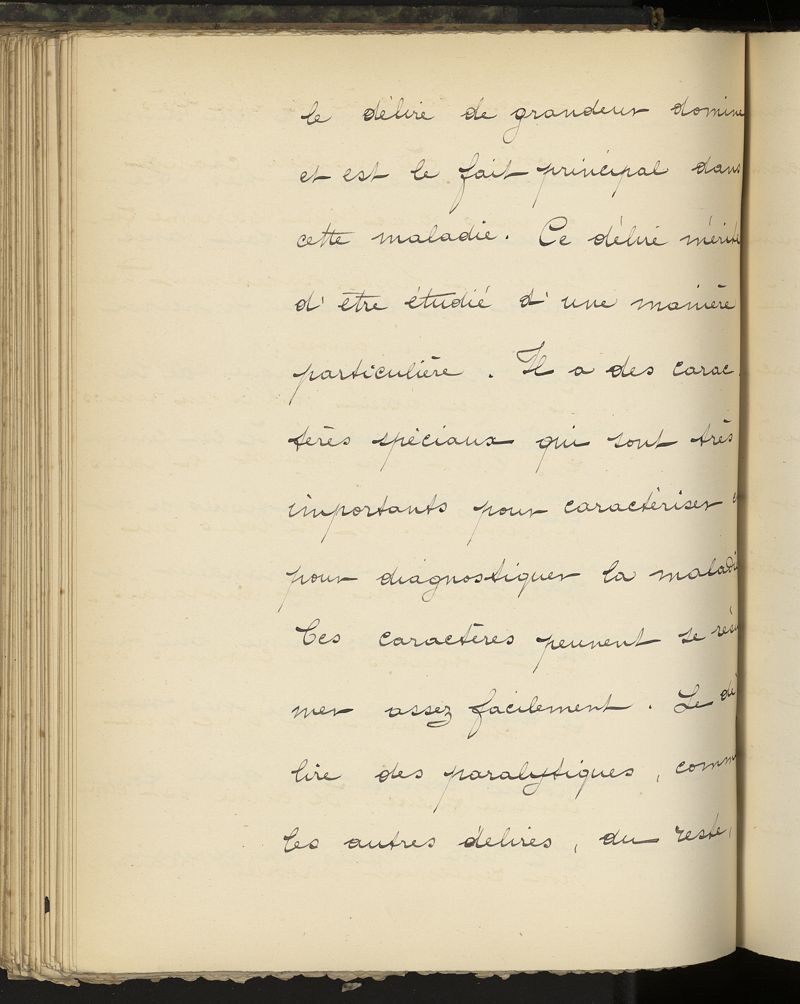 le délire de grandeur domine
et est le fait principal dans
cette maladie. Ce délire mérite
d'être étudié d'une manière
particulière. Il a des carac-
tères spéciaux qui sont très
importants pour caractériser
pour diagnostiquer la maladi
Ces caractères peuvent se résu
mer assez facilement. Le dé
lire des paralytiques, comm
les autres délires, du reste,